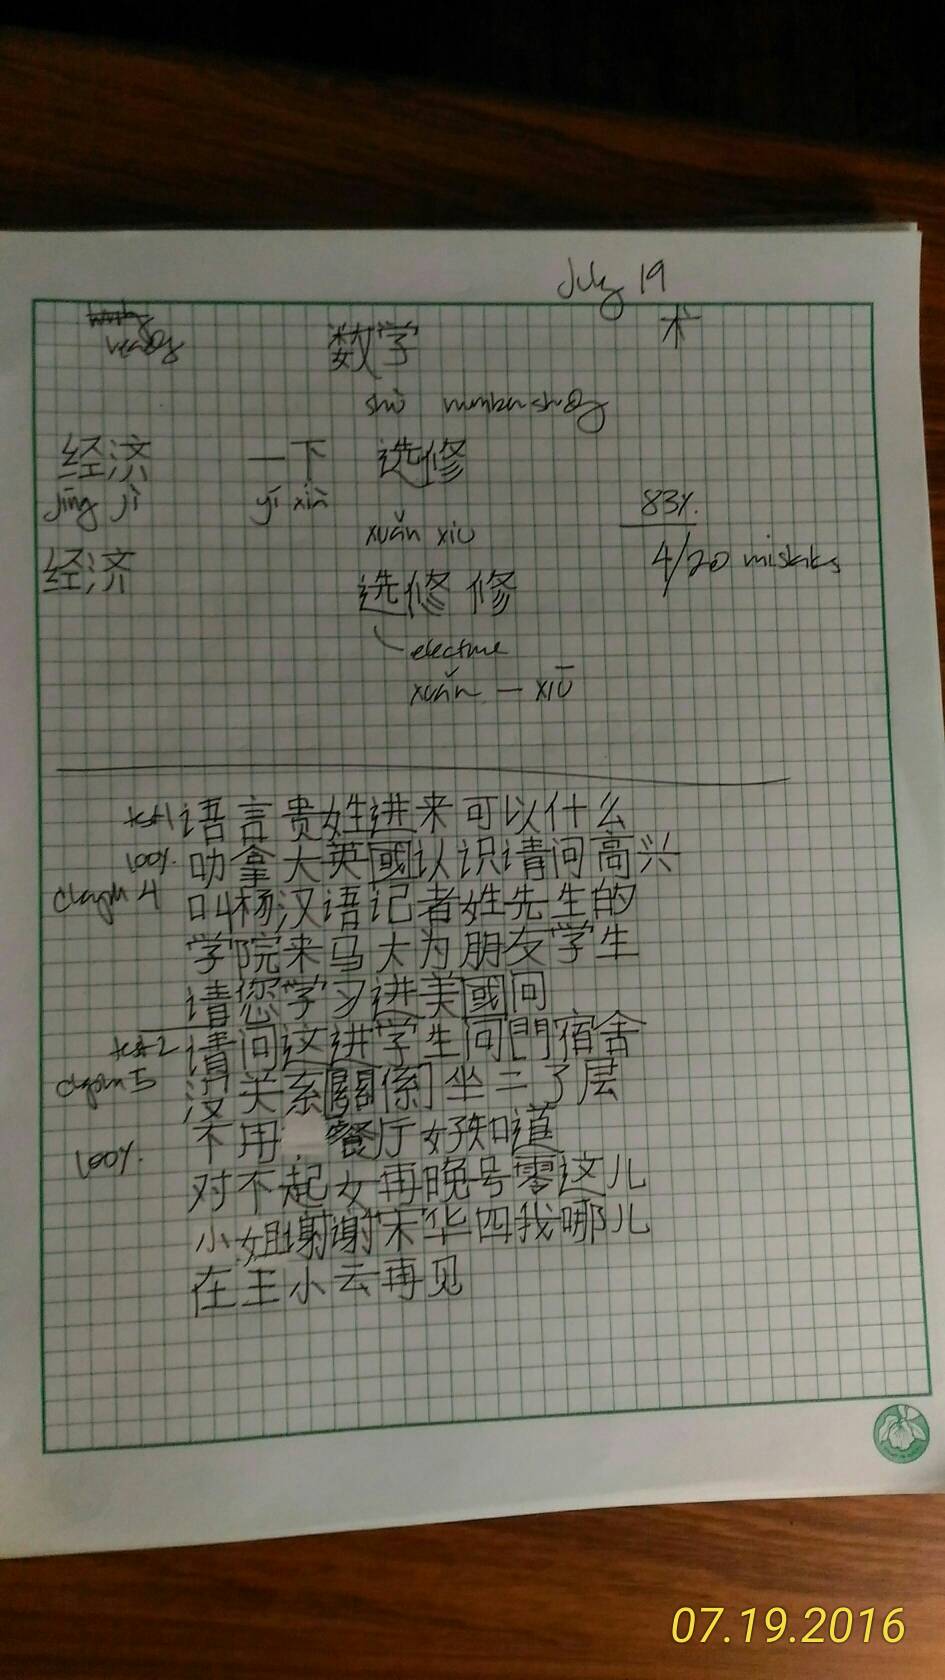 July 19
数学 术
shù number study
经济 一下 选修
jīng jì yí xià
83%
xuǎn xiu
经济
4/20 mistakes
选修 修
elective
xuǎn — xiū
test 1 语言贵姓进来可以什么
100% 叻拿大英國认识请问高兴
chapter 4 叫杨汉语记者姓先生的
学院来马大为朋友学生
请您学习进美國问
test 2 请问这进学生问門宿舍
chapter 5 没关系關係坐二了层
不用 餐厅好知道
100%
对不起女再晚号零这儿
小姐谢谢宋华四我哪儿
在王小云再见
07.19.2016